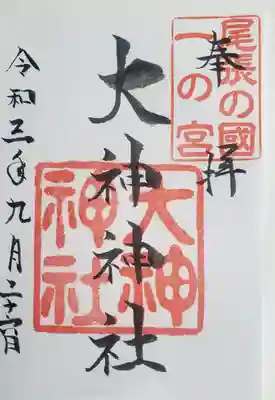 尾張の國
一の宮
奉拝
大神神社
大神
神社
令和三年九月二十日